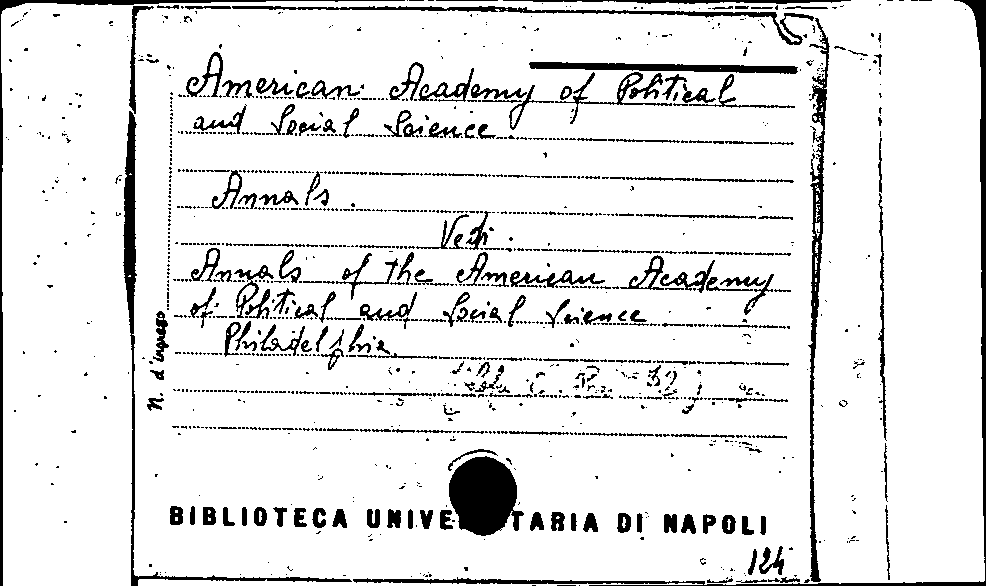 American Academy of Political
and Social Science.
Annals.
Vedi.
Annals of the American Academy
of Political and Social Science
Philadelphia.
N. d'ingresso
BIBLIOTECA UNIVE TARIA DI NAPOLI
124